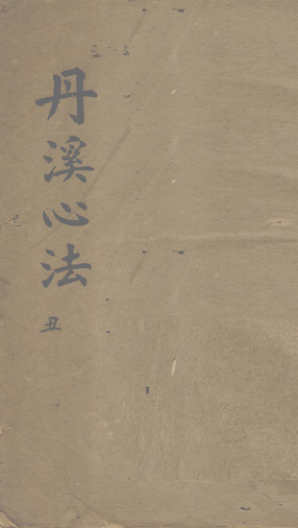 丹溪心法
丑